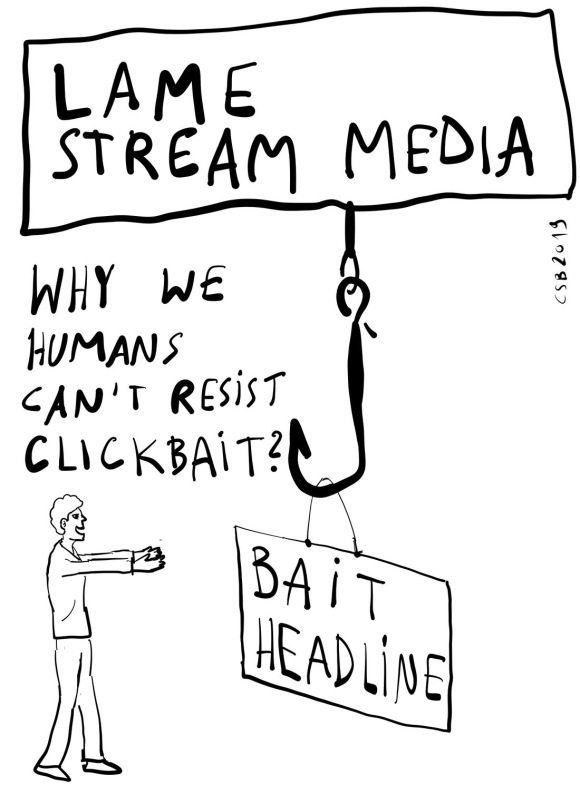 LAME
STREAM MEDIA
CSB2019
WHY WE
HUMANS
CAN'T RESIST
CLICKBAIT?
BAIT
HEADLINE